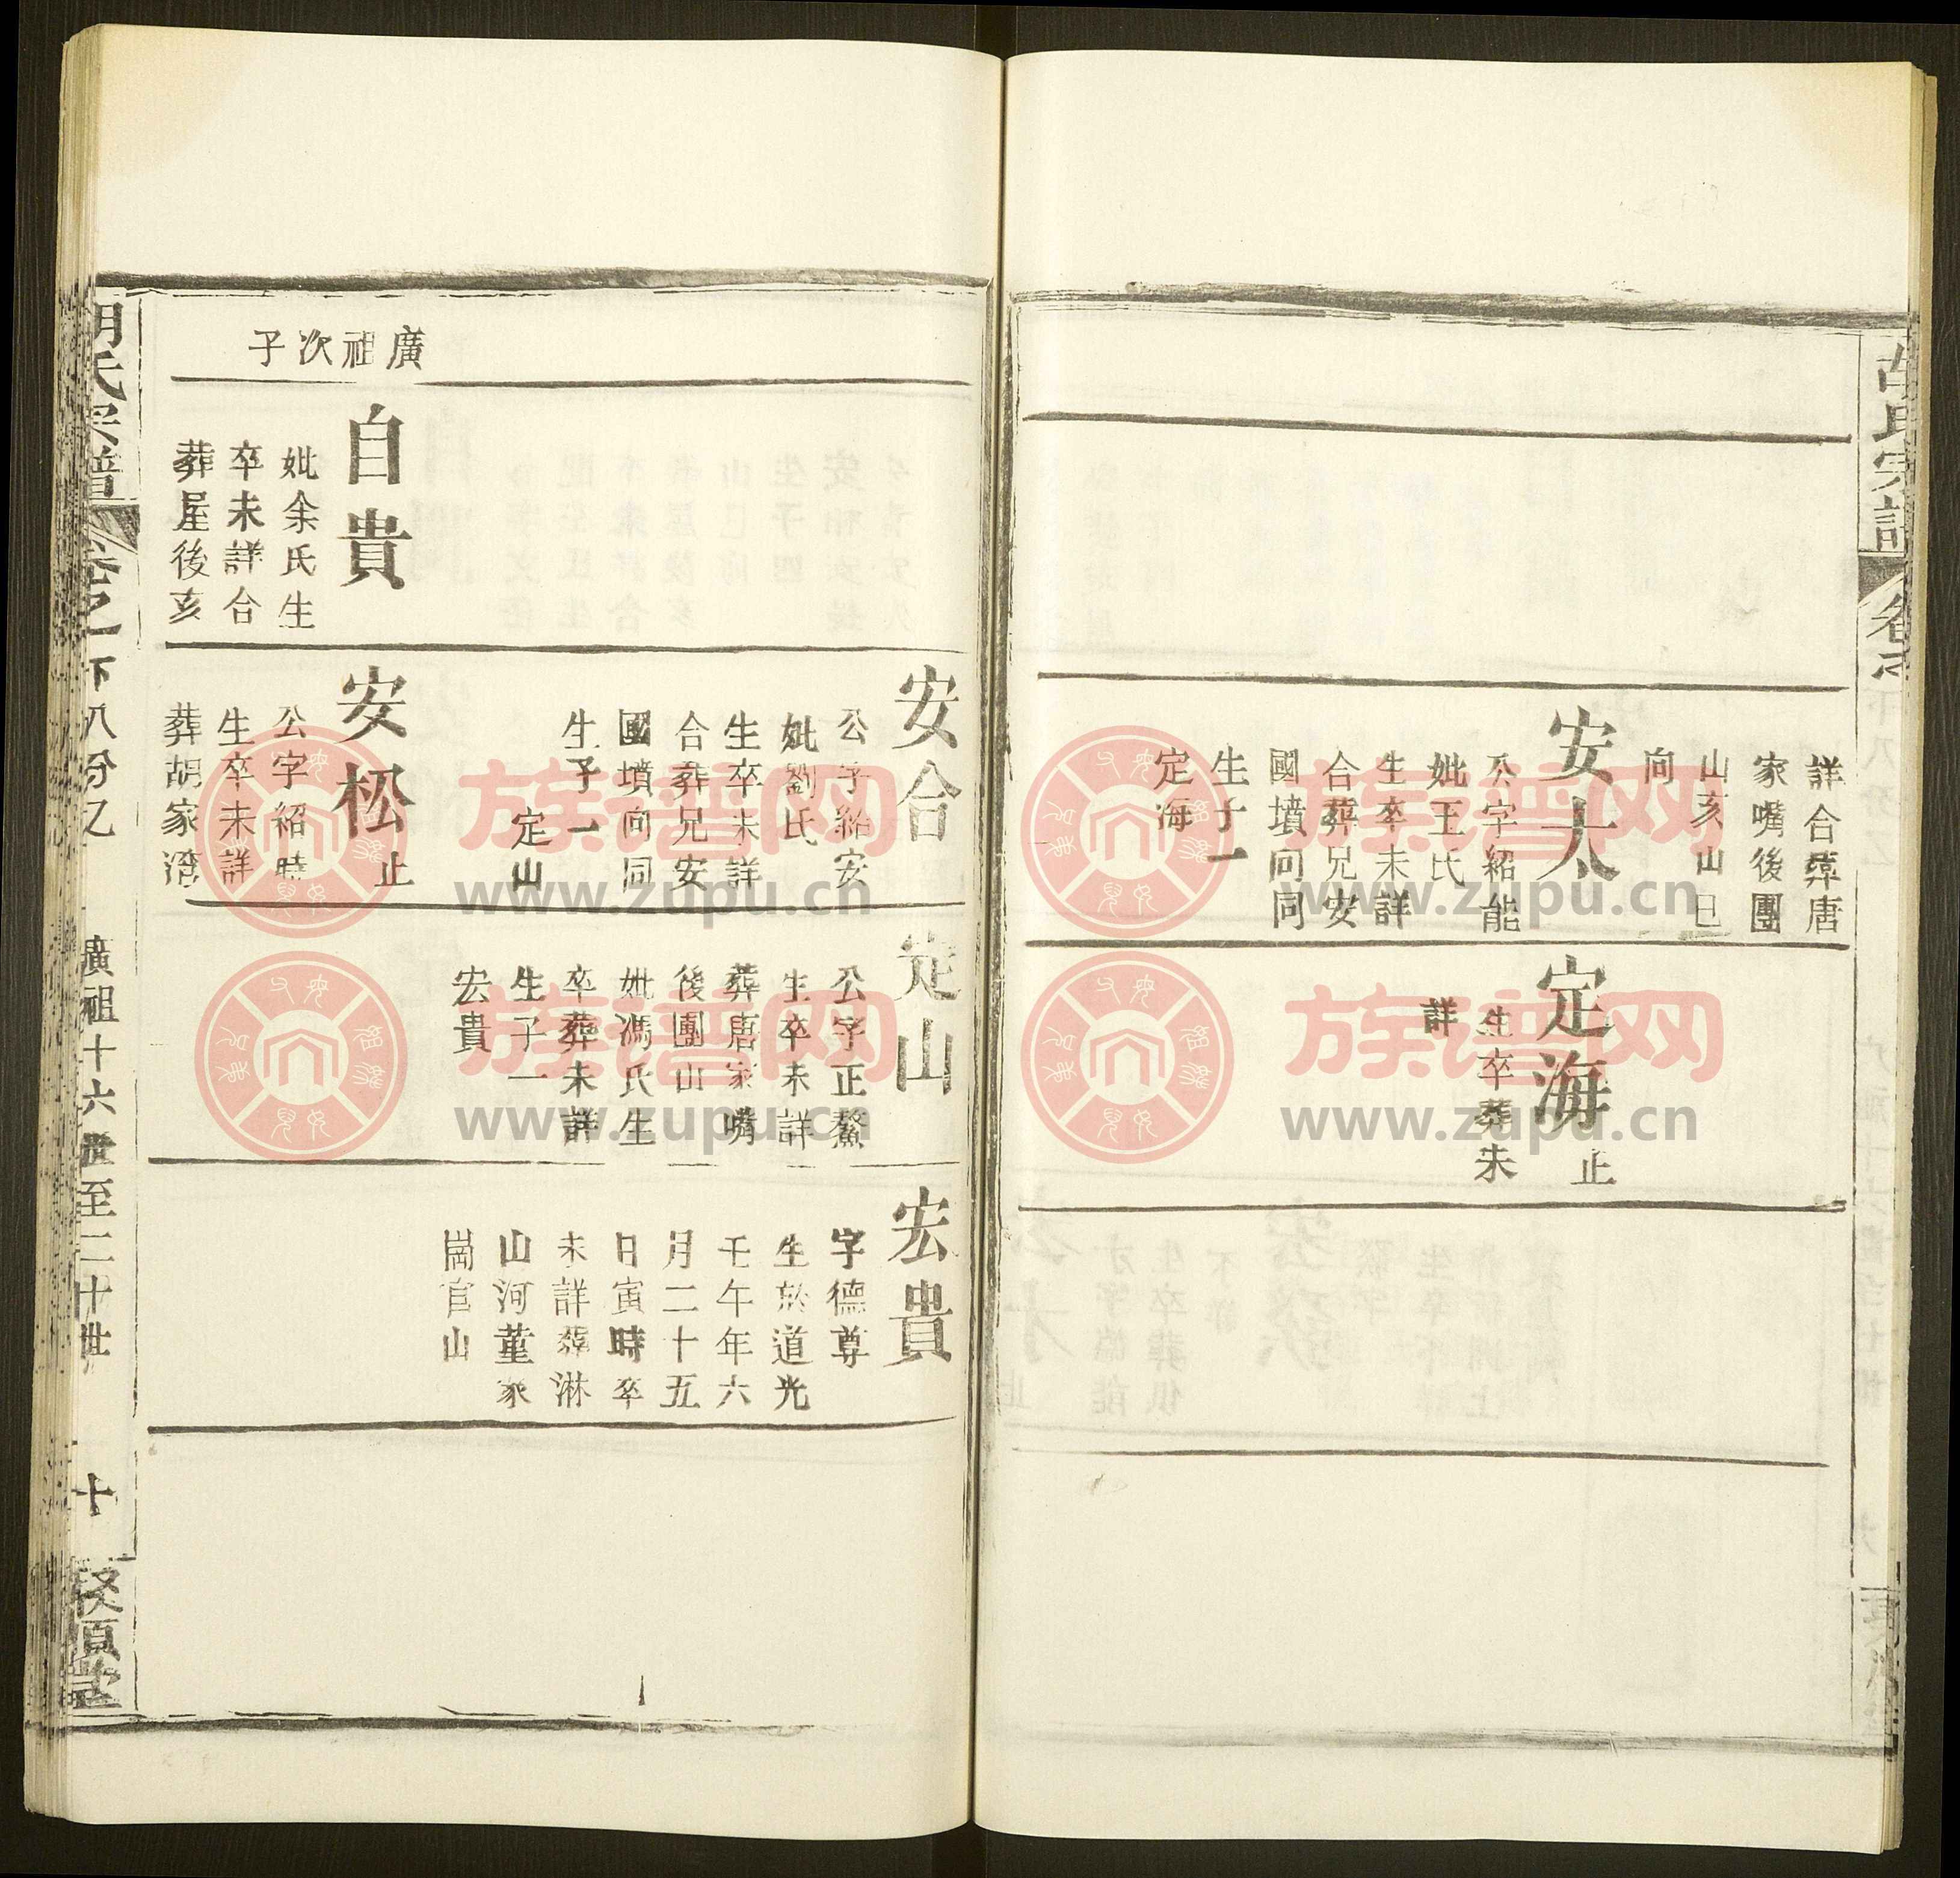 詳合葬唐
家嘴後團
山亥山巳
向
安太
公字紹能
妣王氏
生卒未詳
合葬兄安
國墳向同
生子一
定海
定海
止
生卒葬未
詳
安合
公字紹安
妣劉氏
生卒未詳
合葬兄安
國墳向同
生子一
定山
定山
公字正鰲
生卒未詳
葬唐家嘴
後團山
妣馮氏生
卒葬未詳
生子一
宏貴
宏貴
字德尊
生於道光
壬午年六
月二十五
日寅時卒
未詳葬淋
山河董家
崗官山
廣祖次子
自貴
妣余氏生
卒未詳合
葬屋後亥
安松
止
公字紹時
生卒未詳
葬胡家灣
胡氏宗譜
卷之一下八分乙
廣祖十六世至二十世
十
族谱网
www.zupu.cn
族谱网
www.zupu.cn
族谱网
www.zupu.cn
族谱网
www.zupu.cn